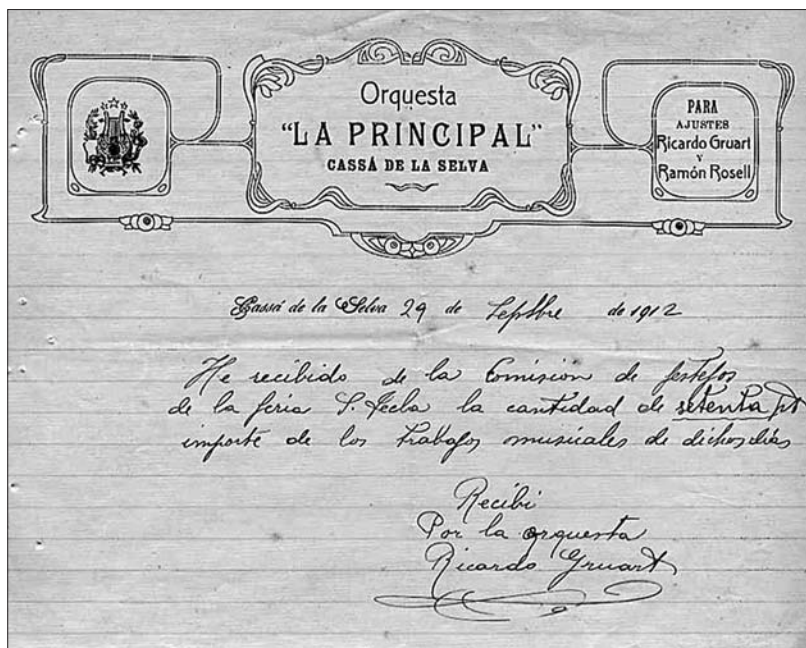 Orquesta
"LA PRINCIPAL"
CASSÁ DE LA SELVA
PARA
AJUSTES
Ricardo Gruart
Y
Ramón Rosell
Cassá de la Selva 29 de Septbre de 1912
He recibido de la Comision de festejos
de la feria S. Tecla la cantidad de setenta pt
importe de los trabajos musicales de dichos dias
Recibi
Por la orquesta
Ricardo Gruart